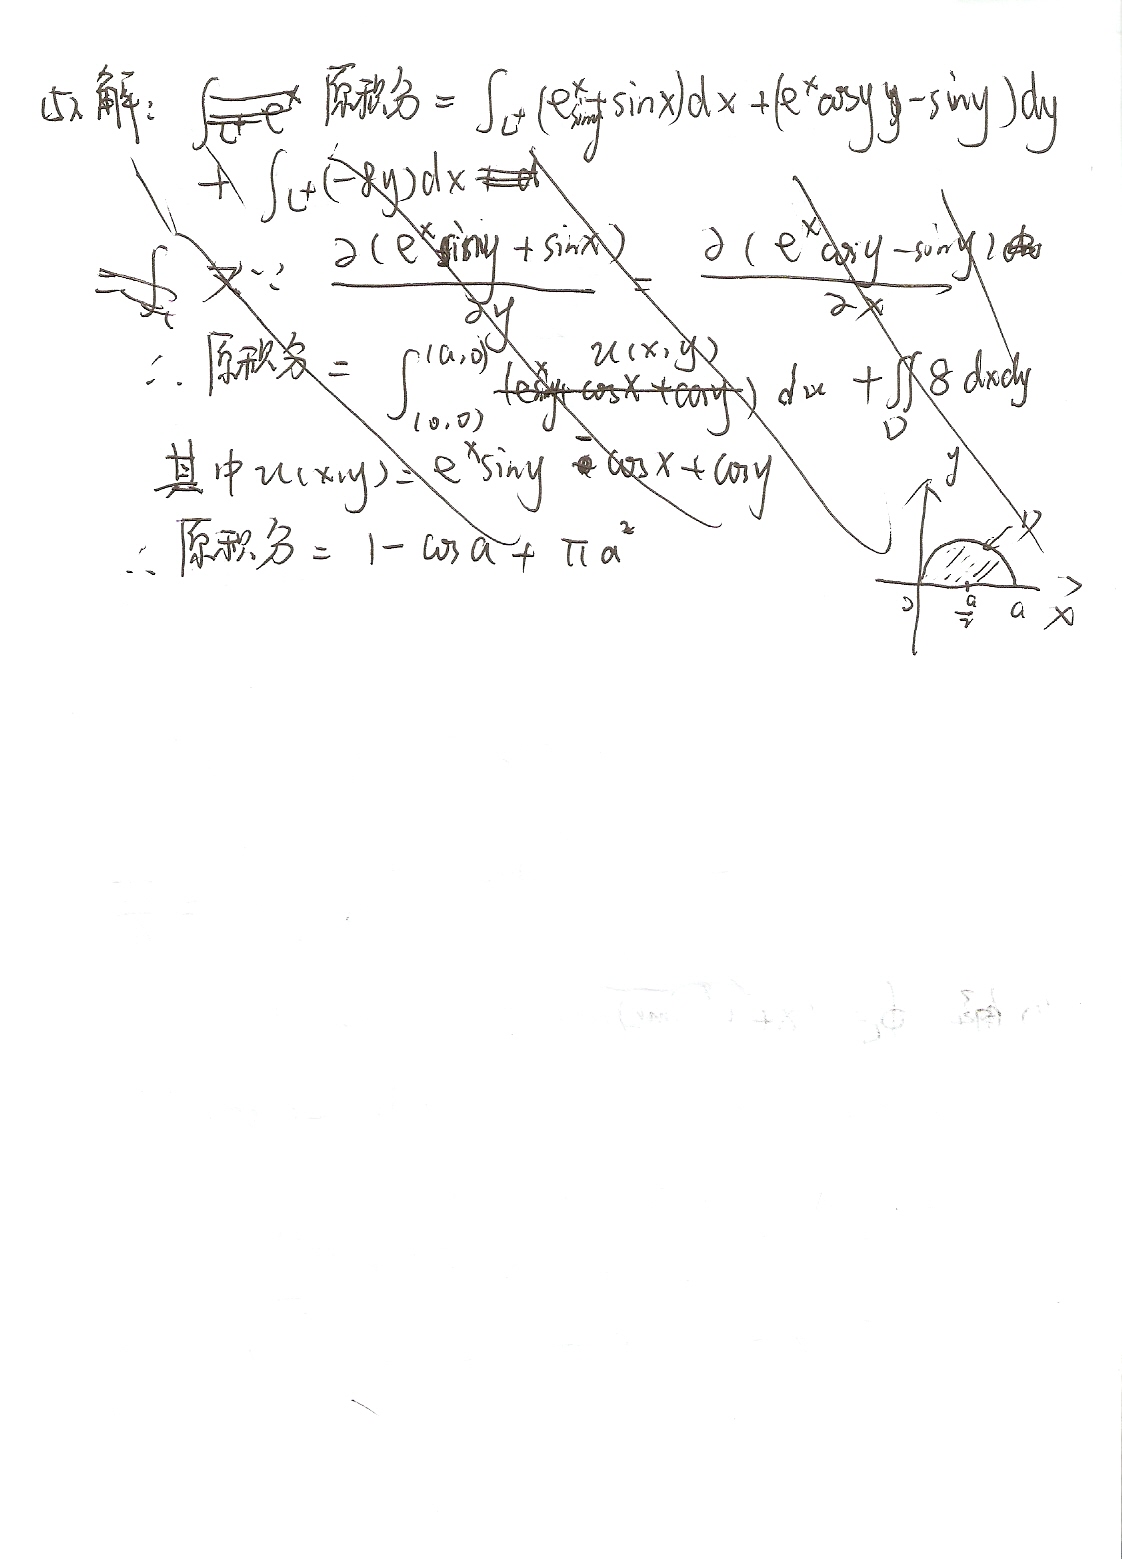 (5) 解: 原积分 = ∫_{L+} (e^x siny + sinx)dx + (e^x cosy - siny)dy
+ ∫_{L+} (-8y)dx
又∵ ∂(e^x siny + sinx)/∂y = ∂(e^x cosy - siny)/∂x
∴ 原积分 = ∫_{(0,0)}^{(a,0)} u(x,y) du + ∬_D 8 dxdy
其中 u(x,y) = e^x siny - cosx + cosy
∴ 原积分 = 1 - cosa + πa²
y
D
0 a/2 a x